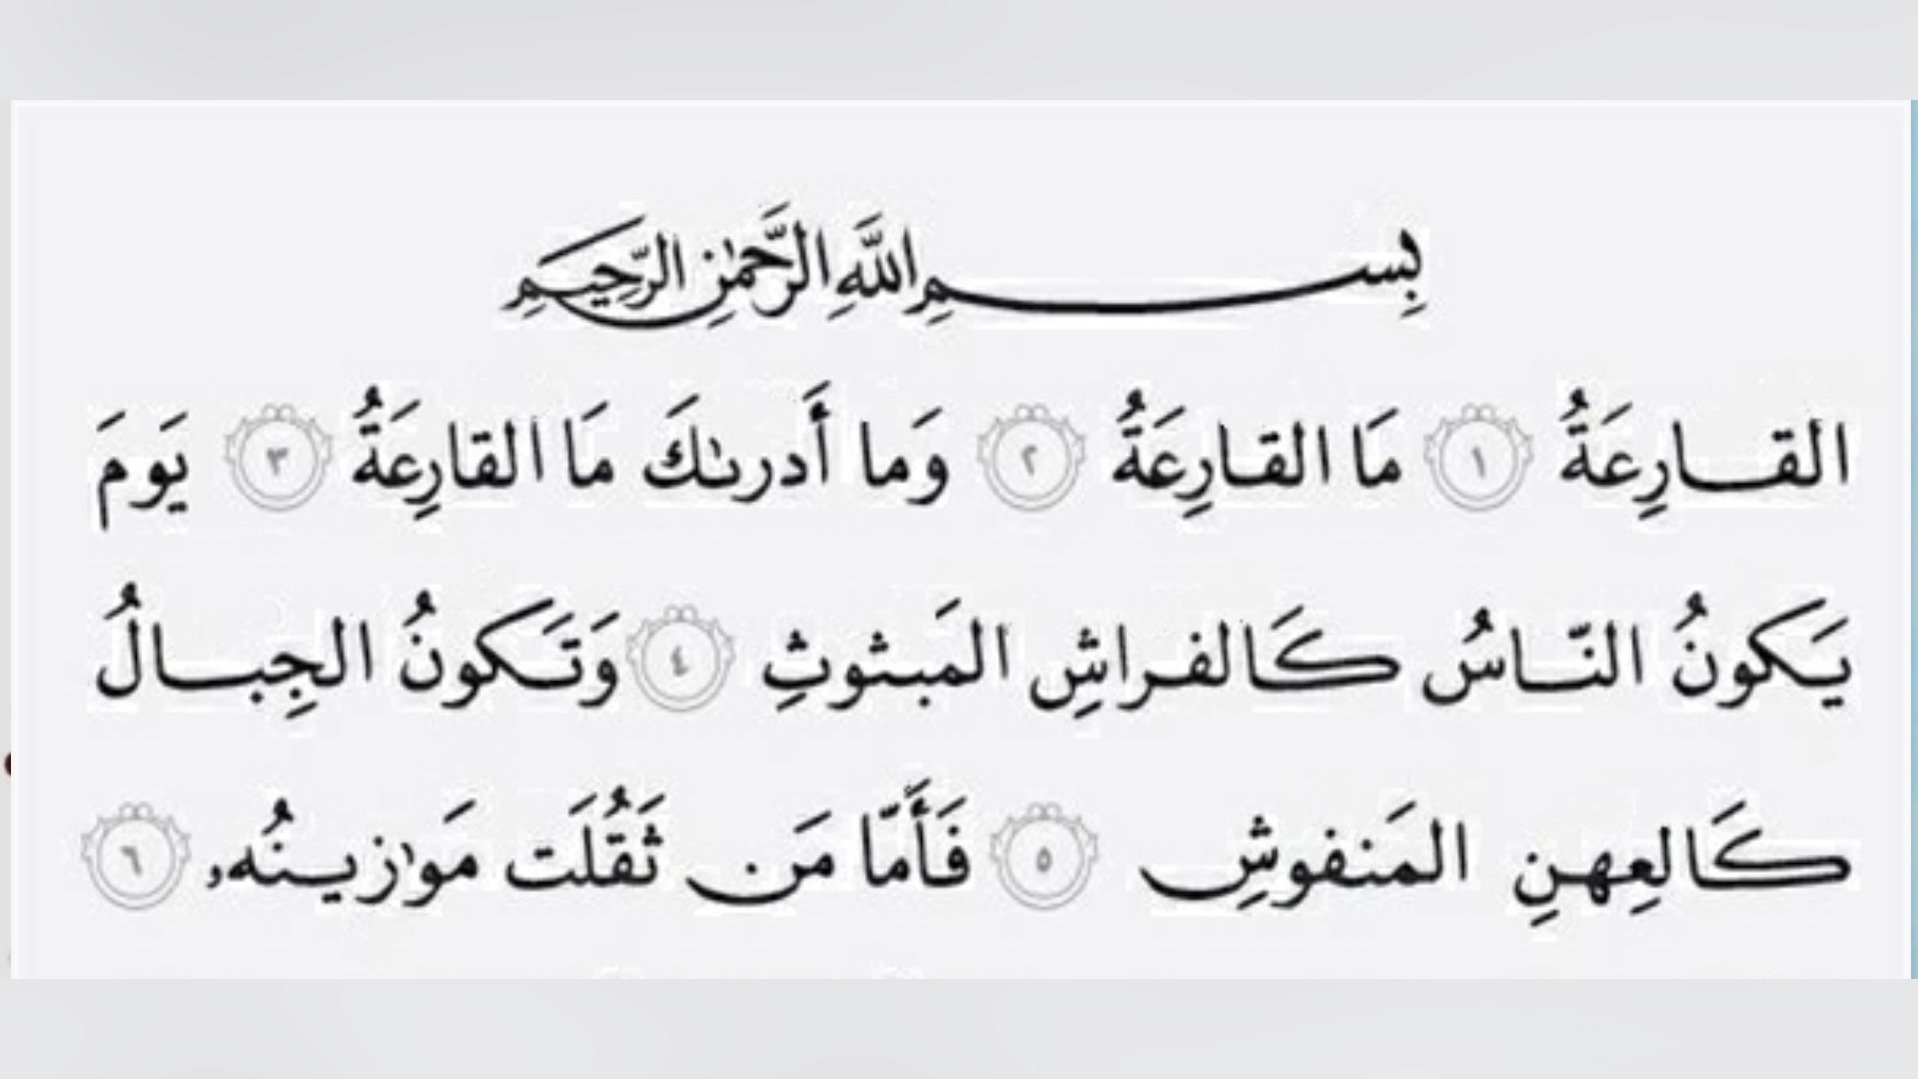 بِسمِ اللَّهِ الرَّحمٰنِ الرَّحيمِ
القارِعَةُ ﴿١﴾ مَا القارِعَةُ ﴿٢﴾ وَما أَدرىٰكَ مَا القارِعَةُ ﴿٣﴾ يَومَ
يَكونُ النّاسُ كَالفراشِ المَبثوثِ ﴿٤﴾ وَتَكونُ الجِبالُ
كَالعِهنِ المَنفوشِ ﴿٥﴾ فَأَمّا مَن ثَقُلَت مَوٰزينُهۥ ﴿٦﴾